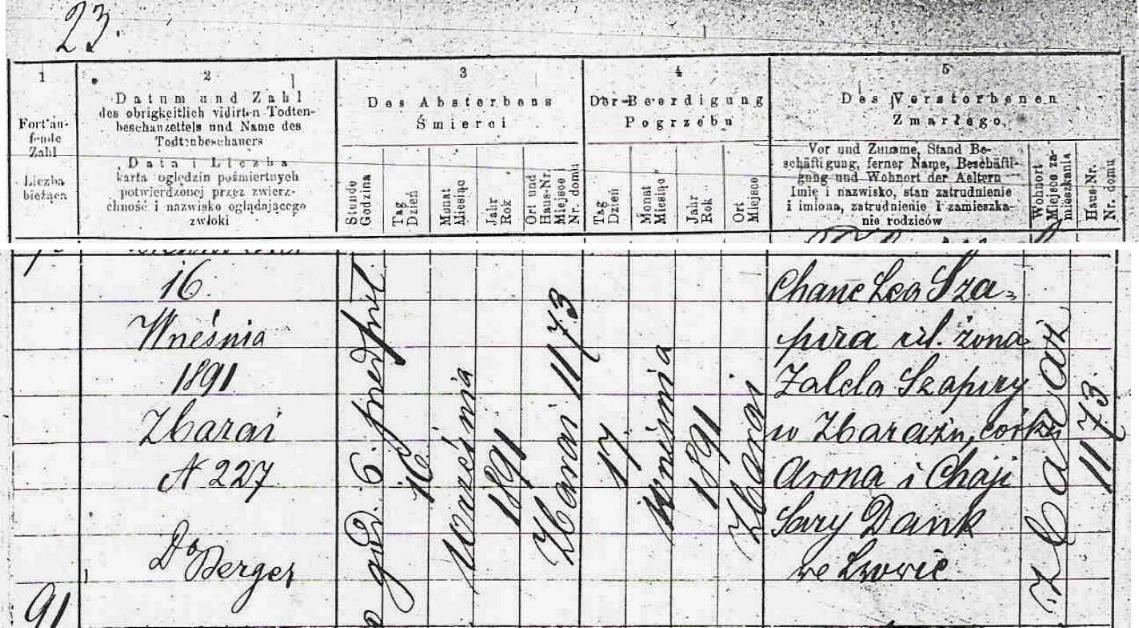 23.
1
2
3
4
5
Fortlau-
fende
Zahl
Liczba
bieżąca
Datum und Zahl
des obrigkeitlich vidirten Todten-
beschauzettels und Name des
Todtenbeschauers
Data i Liczba
karta oględzin pośmiertnych
potwierdzonej przez zwierz-
chność i nazwisko oglądającego
zwłoki
Des Absterbens
Śmierci
Stunde
Godzina
Tag
Dzień
Monat
Miesiąc
Jahr
Rok
Ort und
Haus-Nr.
Miejsce
Nr. domu
Der Beerdigung
Pogrzebu
Tag
Dzień
Monat
Miesiąc
Jahr
Rok
Ort
Miejsce
Des Verstorbenen
Zmarłego
Vor und Zuname, Stand Be-
schäftigung, ferner Name, Beschäfti-
gung und Wohnort der Aeltern
Imię i nazwisko, stan zatrudnienie
i imiona, zatrudnienie i zamieszka-
nie rodziców
Wohnort
Miejsce za-
mieszkania
Haus-Nr.
Nr. domu
16.
Wneśnia
1891
Zbaraż
N 227
Dr Berger
godz. 6. przed
16
Września
1891
Zbaraż 1173
17
Wneśnia
1891
Zbaraż
Chane Lea Sza-
pira rel. żona
Zalela Szapiry
w Zbarażu, córka
Arona i Chaji
Sary Dank
we Lwowie
Zbaraż
1173
91